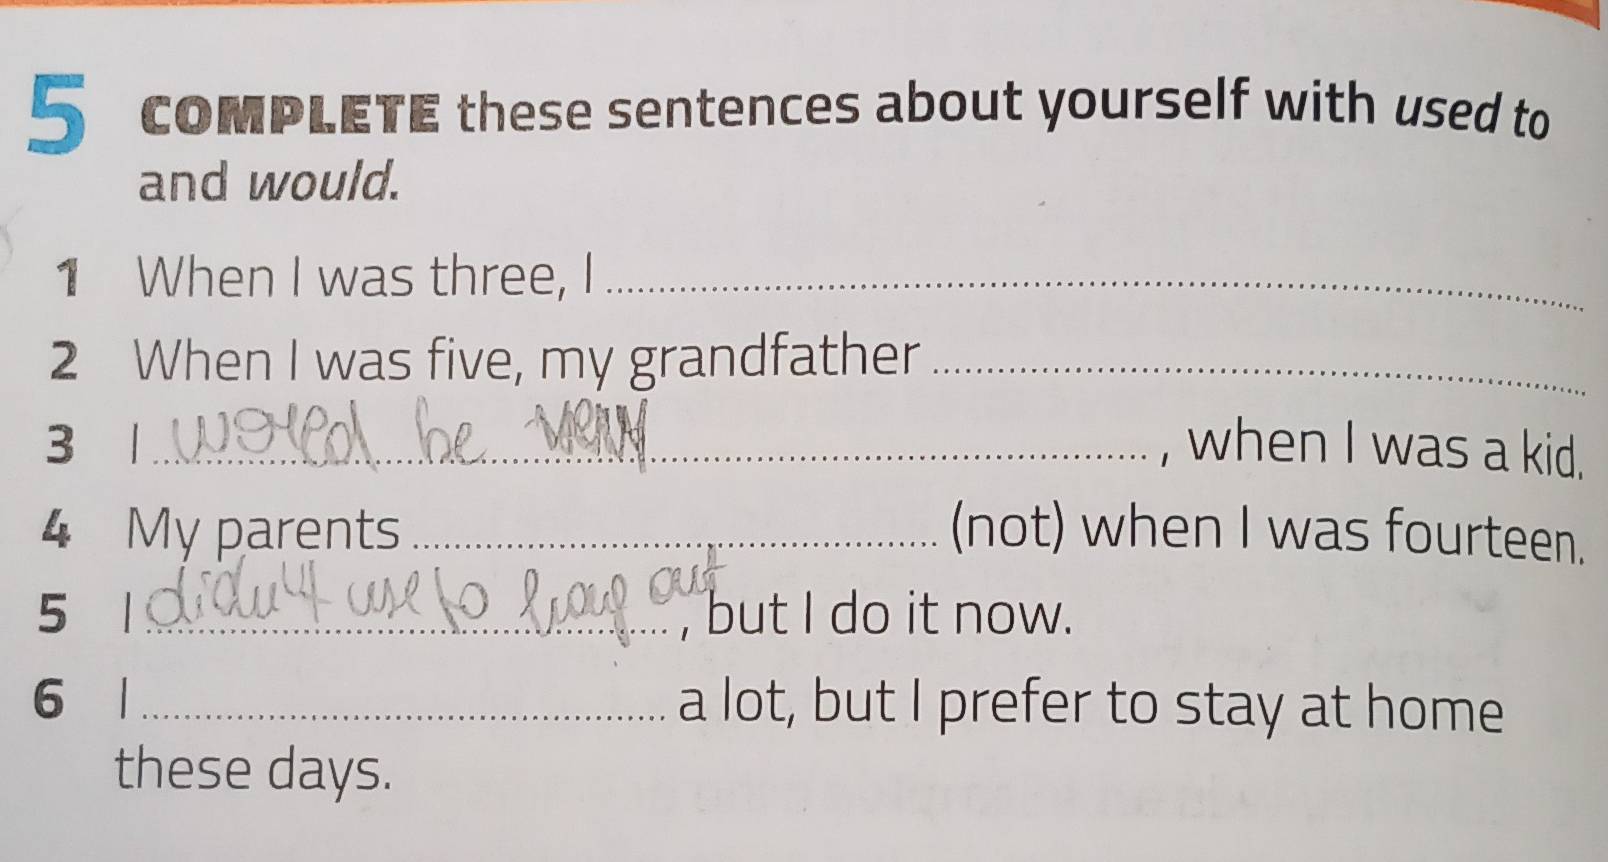 5 COMPLETE these sentences about yourself with used to
and would.
1 When I was three, I
2 When I was five, my grandfather
3 I would be very , when I was a kid.
4 My parents (not) when I was fourteen.
5 I didn't use to hang out , but I do it now.
6 I a lot, but I prefer to stay at home
these days.